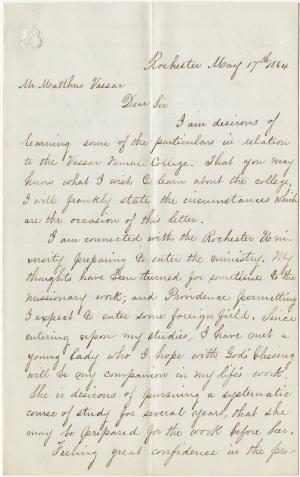 Rochester May 17th, 1864
Mr Matthew Vassar
Dear Sir
I am desirous of
learning some of the particulars in relation
to the Vassar Female College. That you may
know what I wish to learn about the college,
I will frankly state the circumstances which
are the occasion of this letter.
I am connected with the Rochester Uni-
versity preparing to enter the ministry. My
thoughts have been turned for sometime to the
missionary work; and Providence permitting
I expect to enter some foreign field. Since
entering upon my studies, I have met a
young lady who I hope with God's blessing
will be my companion in my life's work.
She is desirous of pursuing a systematic
course of study for several years, that she
may be prepared for the work before her.
Feeling great confidence in the pro-